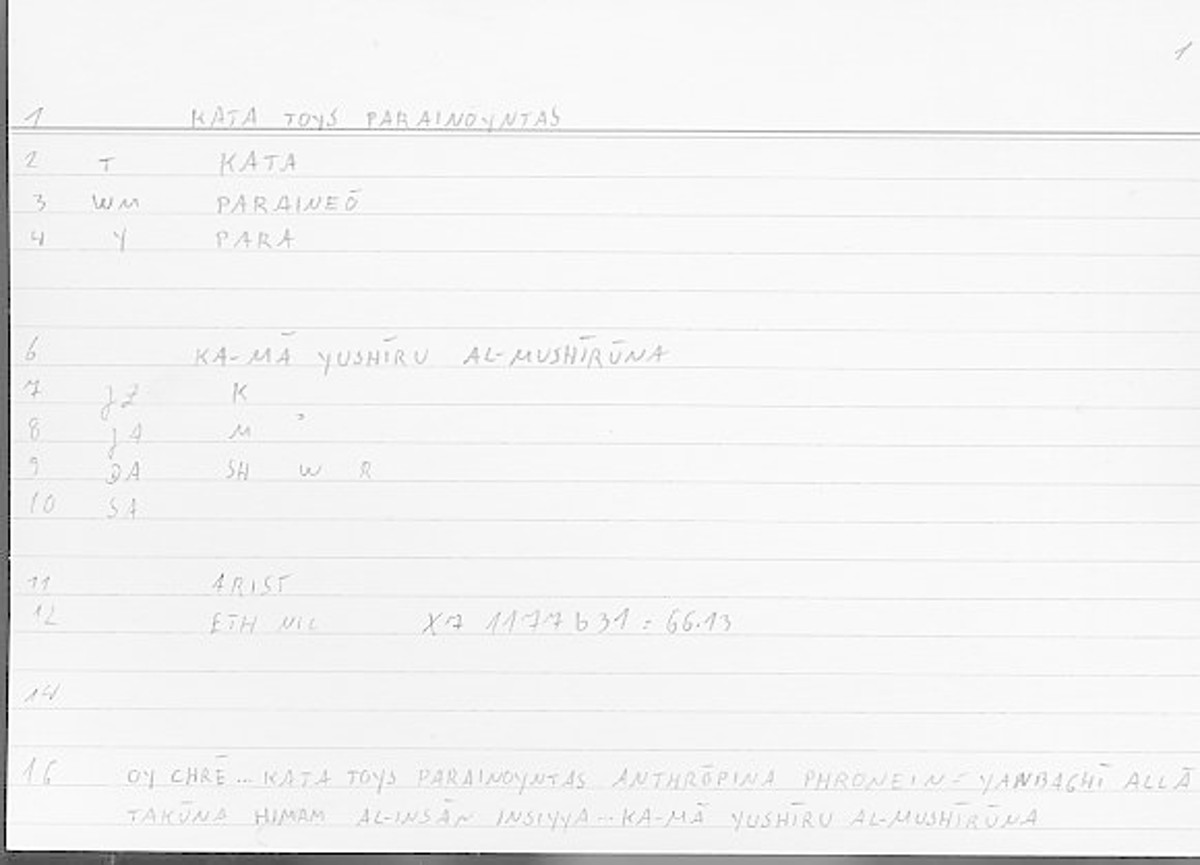 1
1 KATA TOYS PARAINOYNTAS
2 T KATA
3 WM PARAINEŌ
4 Y PARA
6 KA-MĀ YUSHĪRU AL-MUSHĪRŪNA
7 JZ K
8 JA M ʾ
9 DA SH W R
10 SA
11 ARIST
12 ETH NIC X7 1177 b 31 = 66.13
14
16 OY CHRĒ ... KATA TOYS PARAINOYNTAS ANTHRŌPINA PHRONEIN = YANBAGHĪ ALLĀ
TAKŪNA HIMAM AL-INSĀN INSIYYA ... KA-MĀ YUSHĪRU AL-MUSHĪRŪNA